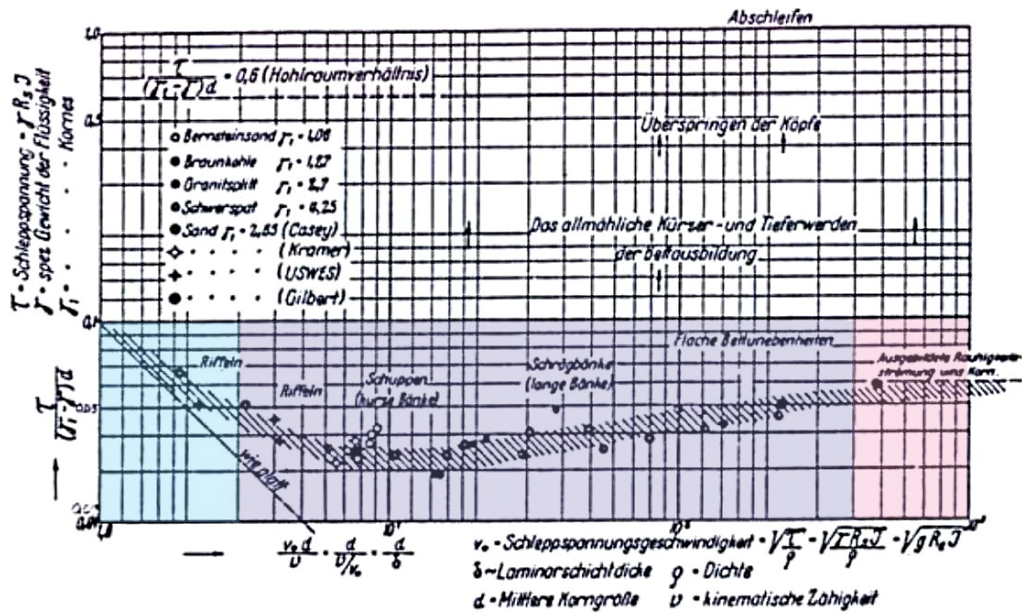 Abschleifen
1,0
τ / (γ₁-γ)d = 0,6 (Hohlraumverhältnis)
0,5
Überspringen der Köpfe
Bernsteinsand γ₁ = 1,06
Braunkohle γ₁ = 1,27
Granitsplitt γ₁ = 2,7
Schwerspat γ₁ = 4,25
Sand γ₁ = 2,65 (Casey)
· · · · (Kramer)
· · · · (USWES)
· · · · (Gilbert)
Das allmähliche Kürzer- und Tieferwerden
der Bettausbildung
τ - Schleppspannung = γ Rs J
γ = spez Gewicht der Flüssigkeit
γ₁ = · · · Kornes
0,1
Riffeln
Riffeln
Schuppen
(kurze Bänke)
Schrägbänke
(lange Bänke)
Flache Bettunebenheiten
Ausgebildete
strömung ums Korn.
0,05
τ / (γ₁-γ)d
1,0
v* d / υ = d / υ/v* = d / δ
v* - Schleppspannungsgeschwindigkeit = √τ/ρ = = √g Rs J
δ ~ Laminarschichtdicke ρ = Dichte
d = Mittlere Korngröße υ = kinematische Zähigkeit